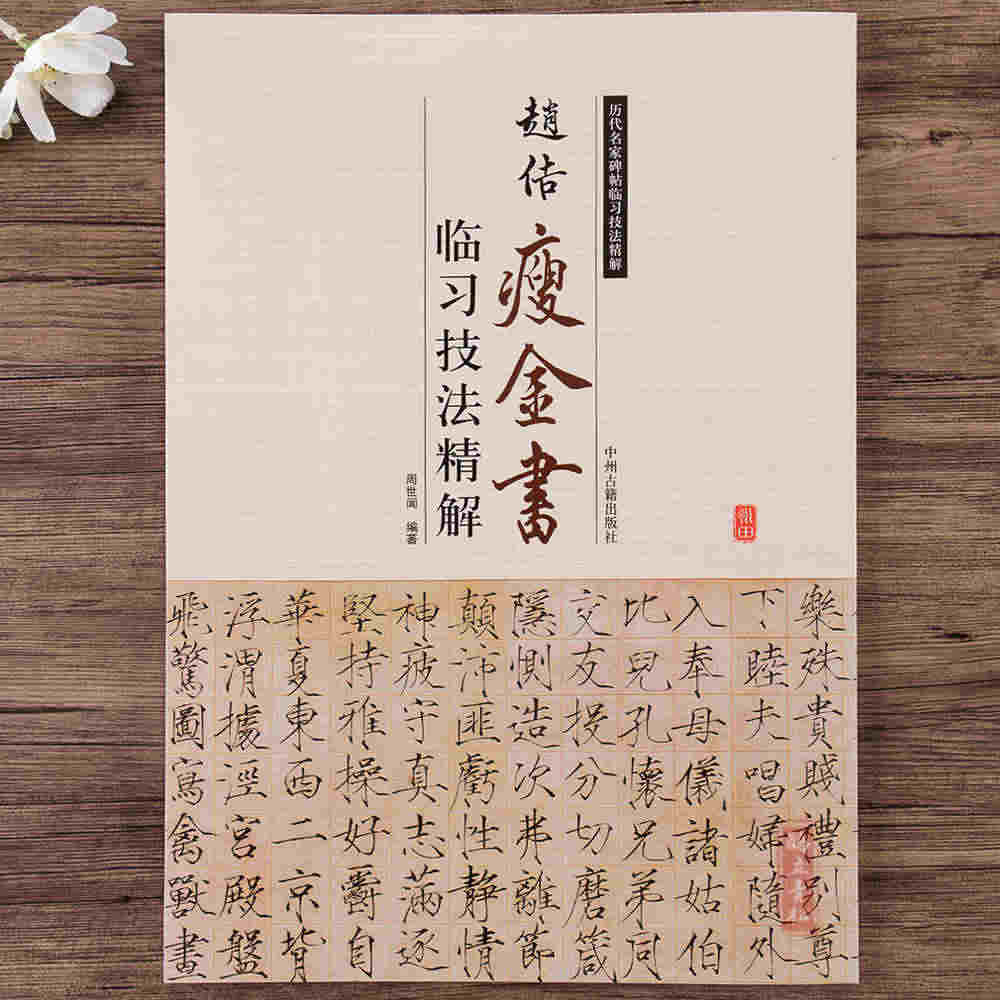 历代名家碑帖临习技法精解
中州古籍出版社
趙佶
瘦金書
临习技法精解
周世闻 编著
樂殊貴賤禮别尊
下睦夫唱婦隨外
入奉母儀諸姑伯
比兒孔懷兄弟同
交友投分切磨箴
隱惻造次弗離節
顛沛匪虧性靜情
神疲守真志滿逐
堅持雅操好爵自
華夏東西二京背
浮渭據涇宮殿盤
飛驚圖寫禽獸畫